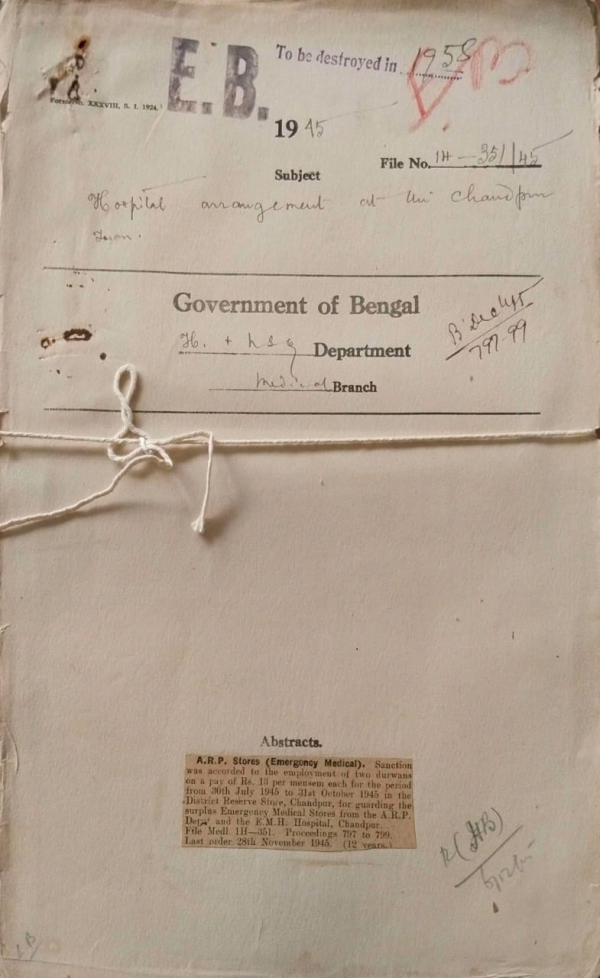 E.B.
To be destroyed in 1958
Form No. XXXVIII, S. I. 1924.
1945
File No. 1H-351/45
Subject
Hospital arrangement at the Chandpur
Town.
Government of Bengal
H. + L S G Department
Medical Branch
B Dec/45
797-99
Abstracts.
A.R.P. Stores (Emergency Medical). Sanction
was accorded to the employment of two durwans
on a pay of Rs. 13 per mensem each for the period
from 30th July 1945 to 31st October 1945 in the
District Reserve Store, Chandpur, for guarding the
surplus Emergency Medical Stores from the A.R.P.
Depot and the E.M.H. Hospital, Chandpur.
File Medl. 1H—351. Proceedings 797 to 799.
Last order 28th November 1945. (12 years.)